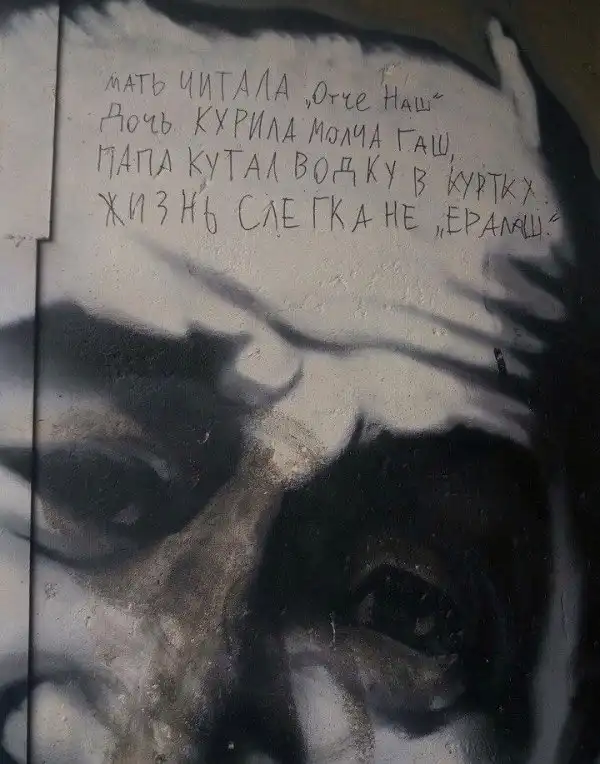 мать ЧИТАЛА „Отче НАШ“
Дочь КУРИЛА МОЛЧА ГАШ,
ПАПА КУТАЛ ВОДКУ В КУРТКУ.
ЖИЗНЬ СЛЕГКА НЕ „ЕРАЛАШ.“